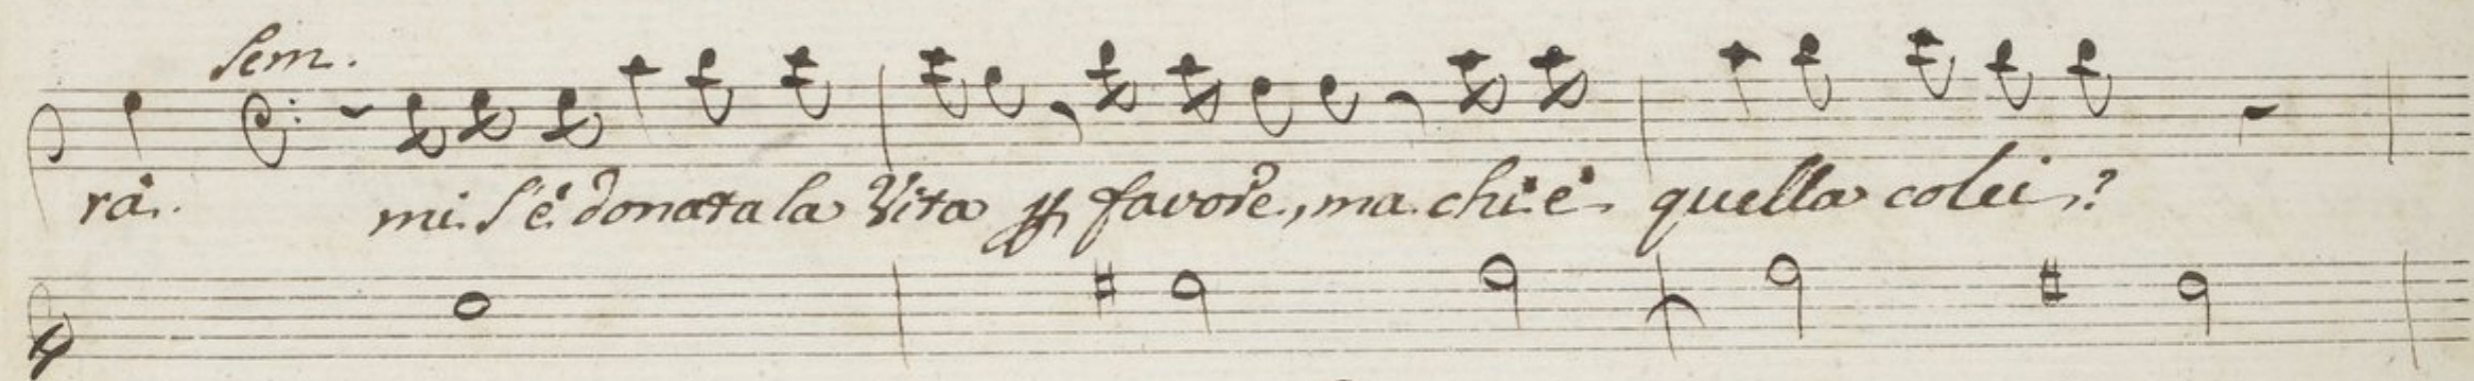 Sem.
rà. mi s'è donata la Vita ꝑ favore, ma chi è quella colei?